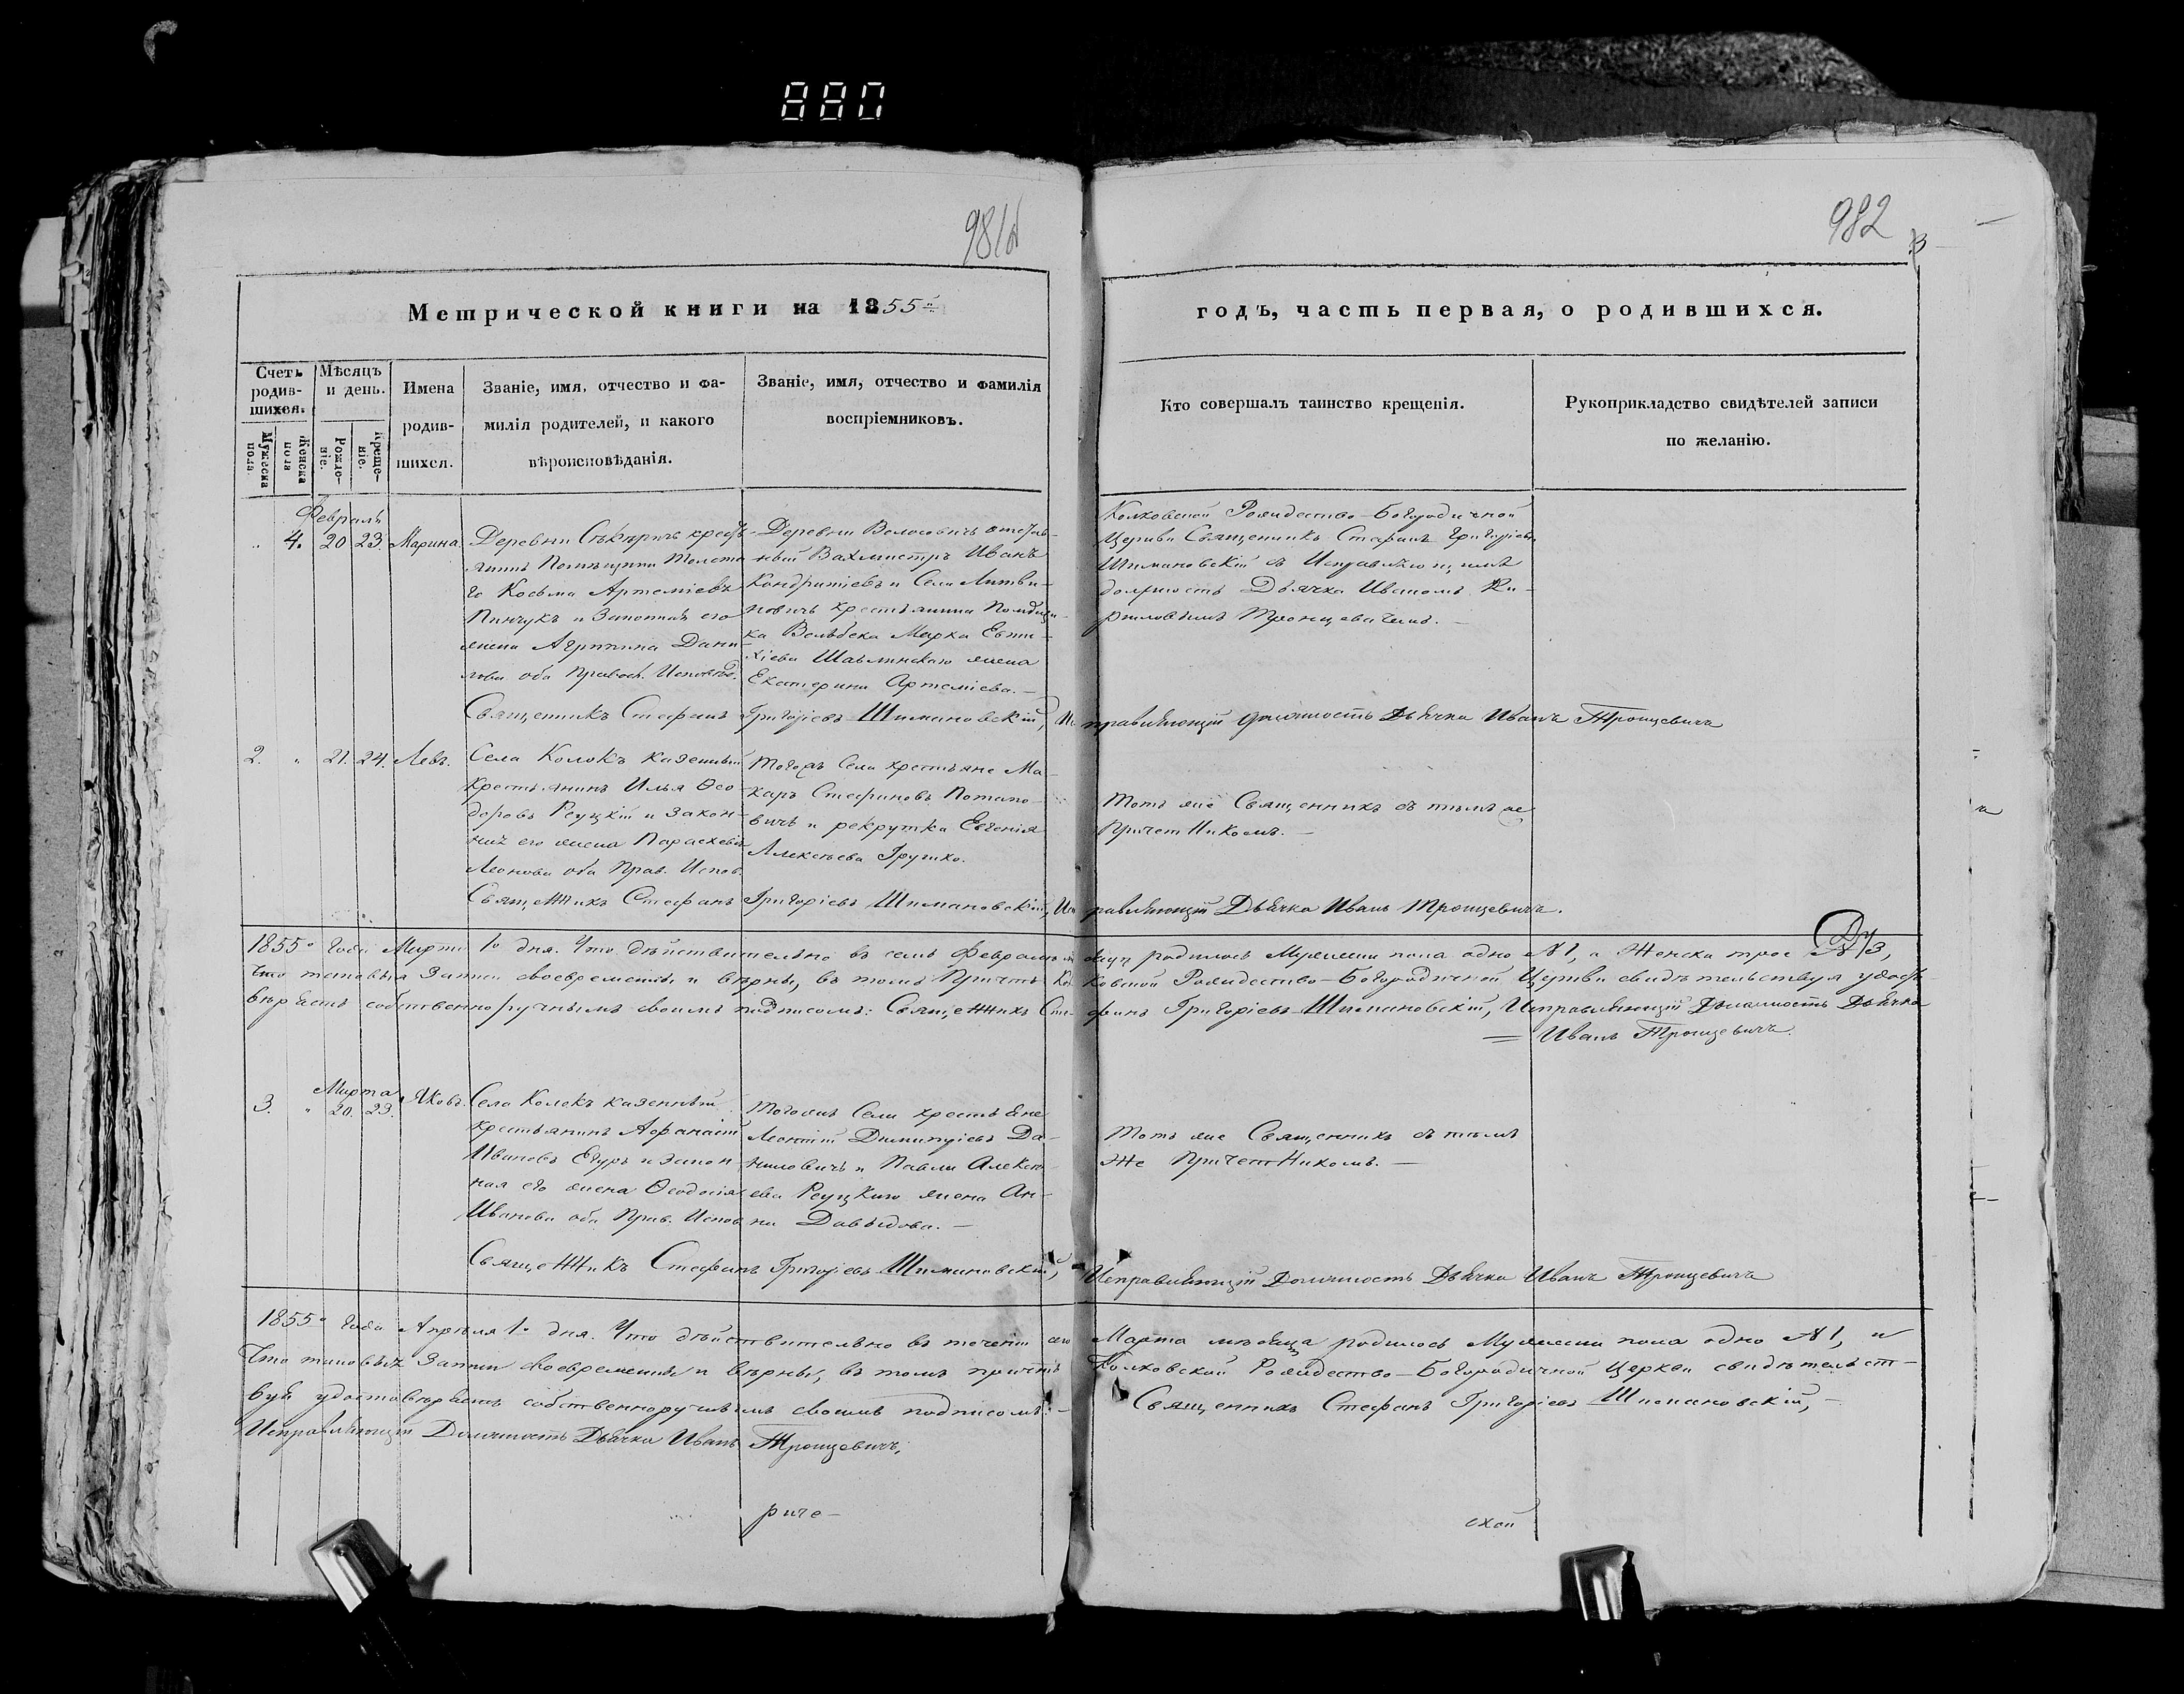 880
981б
982
Метрической книги на 1855й
годъ, часть первая, о родившихся.
Счетъ родив-шихся.
Мужеска пола
Женска пола
Мѣсяцъ и день.
Рожде-ніе.
Креще-ніе.
Имена родив-шихся.
Званіе, имя, отчество и фа-
милія родителей, и какого
вѣроисповѣданія.
Званіе, имя, отчество и фамилія
воспріемниковъ.
Кто совершалъ таинство крещенія.
Рукоприкладство свидѣтелей записи
по желанію.
Февраль
4. 20 23. Марина.
Деревни крестья-
янинъ Помѣщика
го Косьма Артеміевъ
Пинчукъ и Законная его
жена Агрипина Дани-
лова оба Правосл. Исповѣд.
Деревни отстав-
ный Вахмистръ Иванъ
Кондратіевъ и Села Литви-
новичъ крестьянина Помѣщи-
ка Вельбека Марка Евти-
хіева жена
Екатерина Артеміева. —
Колковской Рождество-Богородичной
Церкви Священникъ Стефанъ Григоріевъ
Шимановскій съ Исправляющимъ
должность Дьячка Иваномъ Ки-
риловымъ Троицевичемъ. —
Священникъ Стефанъ Григоріевъ Шимановскій, Исправляющій должность Дьячка Иванъ Троицевичъ
2. " 21. 24. Левъ.
Села Колокъ казенный
крестьянинъ Илья Ѳео-
доровъ Реуцкій и Закон-
ная его жена Параскевія
Леонова оба Прав. Испов.
Тогожъ Села крестьяне Ма-
каръ Стефановъ Потапо-
вичъ и рекрутка Евгенія
Алексѣева Грушко.
Тотъ же Священникъ съ тѣмъ же
Причетникомъ. —
Священникъ Стефанъ Григоріевъ Шимановскій, Исправляющій Дьячка Иванъ Троицевичъ.
1855го года Марта 1го дня. Что дѣйствительно въ семъ Февралѣ мцѣ родилось Мужеска пола одно №1, а Женска трое №3,
Что таковыя Записи своевременны и вѣрны, въ томъ Причтъ Колковской Рождество-Богородичной Церкви свидѣтельствуя удосто-
вѣряетъ собственноручнымъ своимъ подписомъ: Священникъ Стефанъ Григоріевъ Шимановскій, Исправляющій Должность Дьячка
= Иванъ Троицевичъ.
Марта
3. " 20. 23. Яковъ.
Села Колокъ казенный
крестьянинъ Афанасій
Ивановъ Егуръ и Закон-
ная его жена Ѳеодосія
Иванова оба Прав. Испов.
Тогожъ Села крестьяне
Леонтій Димитріевъ Да-
ниловичъ и Павла Алексѣ-
ева Реуцкаго жена Ан-
на Давыдова. —
Тотъ же Священникъ съ тѣмъ
же Причетникомъ. —
Священникъ Стефанъ Григоріевъ Шимановскій, Исправляющій Должность Дьячка Иванъ Троицевичъ
1855го года Апрѣля 1го дня. Что дѣйствительно въ теченіи сего Марта мѣсяца родилось Мужеска пола одно №1, и
Что таковыя Записи своевременны и вѣрны, въ томъ причтъ Колковской Рождество-Богородичной Церкви свидѣтельст-
вуя удостовѣряетъ собственноручнымъ своимъ подписомъ: — Священникъ Стефанъ Григоріевъ Шимановскій, —
Исправляющій Должность Дьячка Иванъ Троицевичъ.
риче-
ской